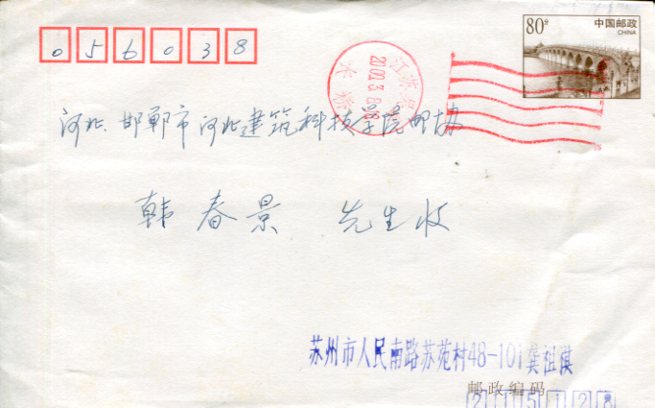 056038
80分
中国邮政
CHINA
江苏
河北 邯郸市 河北建筑科技学院邮协
韩春景 先生收
苏州市人民南路苏苑村48-101 龚祖淇
邮政编码
215128